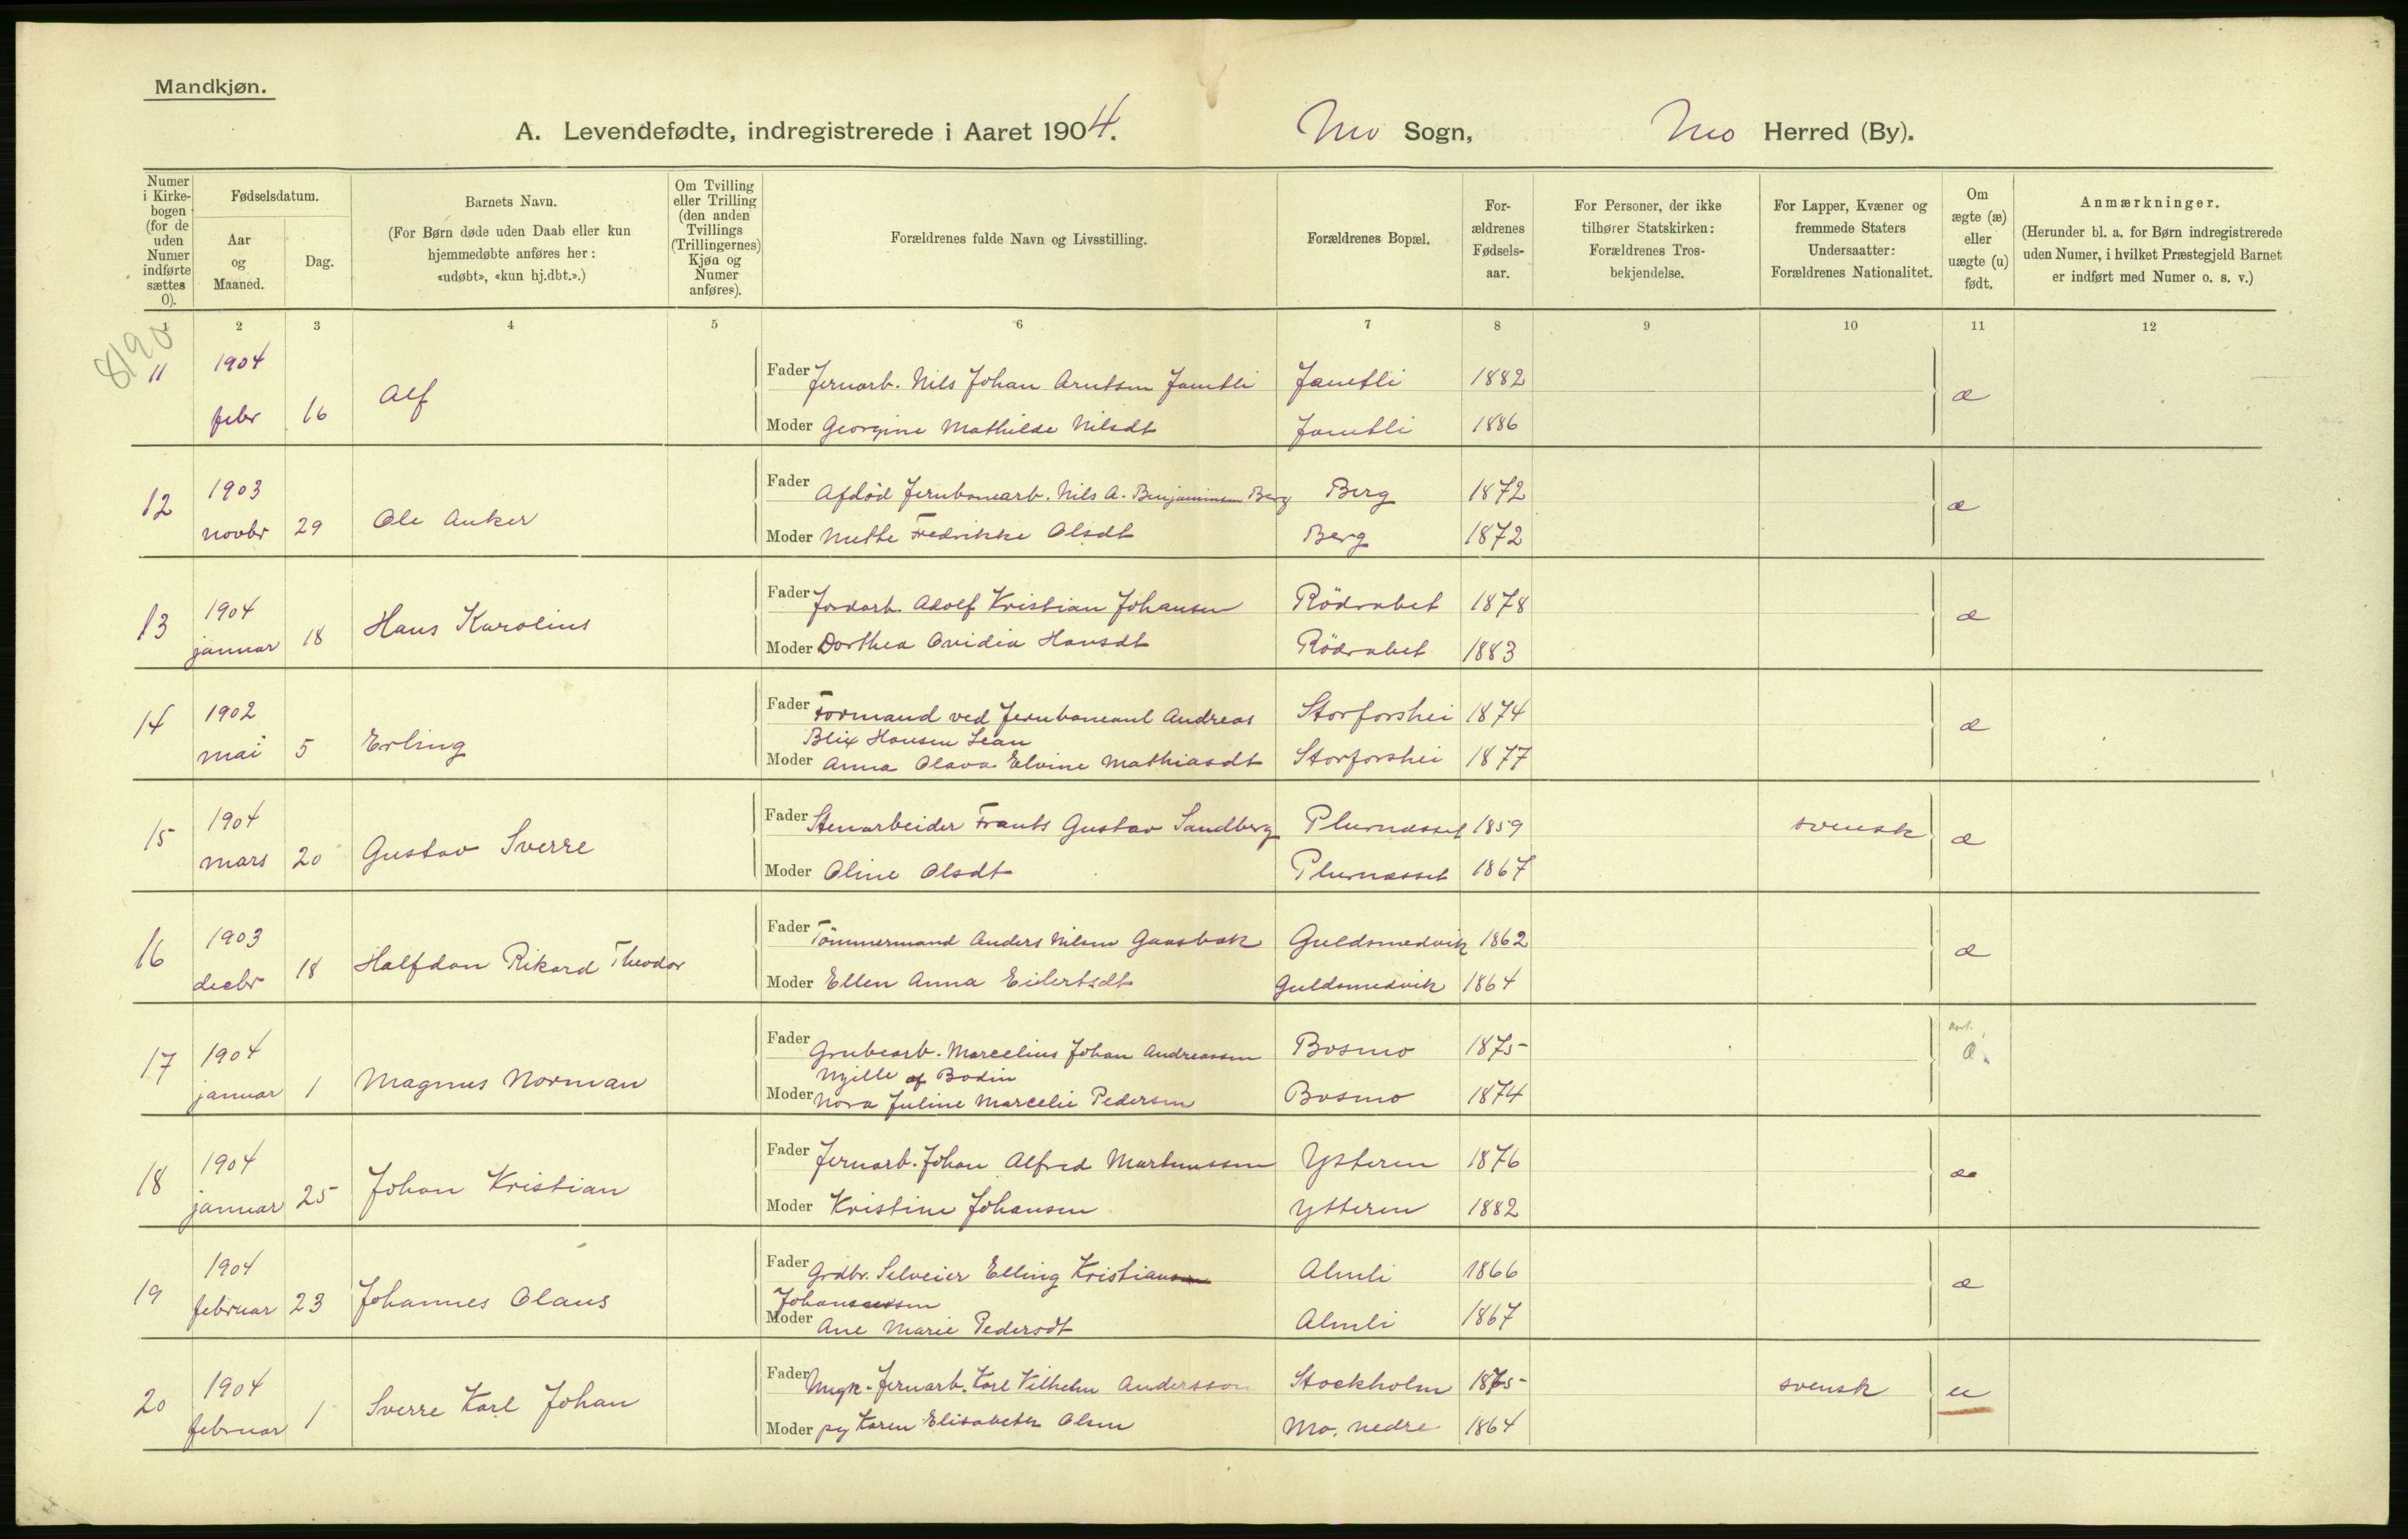 Mandkjøn.
A. Levendefødte, indregistrerede i Aaret 1904. Mo Sogn, Mo Herred (By).
Numer i Kirkebogen (for de uden Numer indførte sættes 0).
Fødselsdatum.
Aar og Maaned.
Dag.
Barnets Navn.
(For Børn døde uden Daab eller kun hjemmedøbte anføres her: «udøbt», «kun hj.dbt.».)
Om Tvilling eller Trilling (den anden Tvillings (Trillingernes) Kjøn og Numer anføres).
Forældrenes fulde Navn og Livsstilling.
Forældrenes Bopæl.
Forældrenes Fødselsaar.
For Personer, der ikke tilhører Statskirken: Forældrenes Trosbekjendelse.
For Lapper, Kvæner og fremmede Staters Undersaatter: Forældrenes Nationalitet.
Om ægte (æ) eller uægte (u) født.
Anmærkninger.
(Herunder bl. a. for Børn indregistrerede uden Numer, i hvilket Præstegjeld Barnet er indført med Numer o. s. v.)
2 3 4 5 6 7 8 9 10 11 12
11 1904 febr 16 Alf
Fader Jernarb. Nils Johan Arntsen Jamtli Jamtli 1882 æ
Moder Georgine Mathilde Nilsdt Jamtli 1886
12 1903 novbr 29 Ole Anker
Fader Afdød Jernbanearb. Nils A. Benjaminsen Berg Berg 1872 æ
Moder Mette Fredrikke Olsdt Berg 1872
13 1904 januar 18 Hans Karolius
Fader Jordarb. Adolf Kristian Johansen Rödrabet 1878 æ
Moder Dorthea Ovidia Hansdt Rödrabet 1883
14 1902 mai 5 Erling
Fader Formand ved Jernbaneanl Andreas Storforshei 1874 æ
Blix Hansen Lean
Moder Anna Olava Elvine Mathiasdt Storforshei 1877
15 1904 mars 20 Gustav Sverre
Fader Stenarbeider Frants Gustav Sandberg Plurnæsset 1859 svensk æ
Moder Oline Olsdt Plurnæsset 1867
16 1903 decbr 18 Halfdan Rikard Theodor
Fader Tömmermand Anders Nilsen Gaasbak Guldsmedvik 1862 æ
Moder Ellen Anna Eilertsdt Guldsmedvik 1864
17 1904 januar 1 Magnus Norman
Fader Grubearb. Marcelius Johan Andreassen Bosmo 1875
Mjelle af Bodin
Moder Nora Juline Marcelie Pedersen Bosmo 1874
18 1904 januar 25 Johan Kristian
Fader Jernarb. Johan Alfred Martinussen Ytteren 1876 æ
Moder Kristine Johansen Ytteren 1882
19 1904 februar 23 Johannes Olaus
Fader Grdbr. Selveier Elling Kristian Almli 1866 æ
Johannessen
Moder Ane Marie Pedersdt Almli 1867
20 1904 februar 1 Sverre Karl Johan
Fader Ungk. Jernarb. Karl Vilhelm Andersson Stockholm 1875 svensk u
Moder pg Karen Elisabeth Olsen Mo, nedre 1864